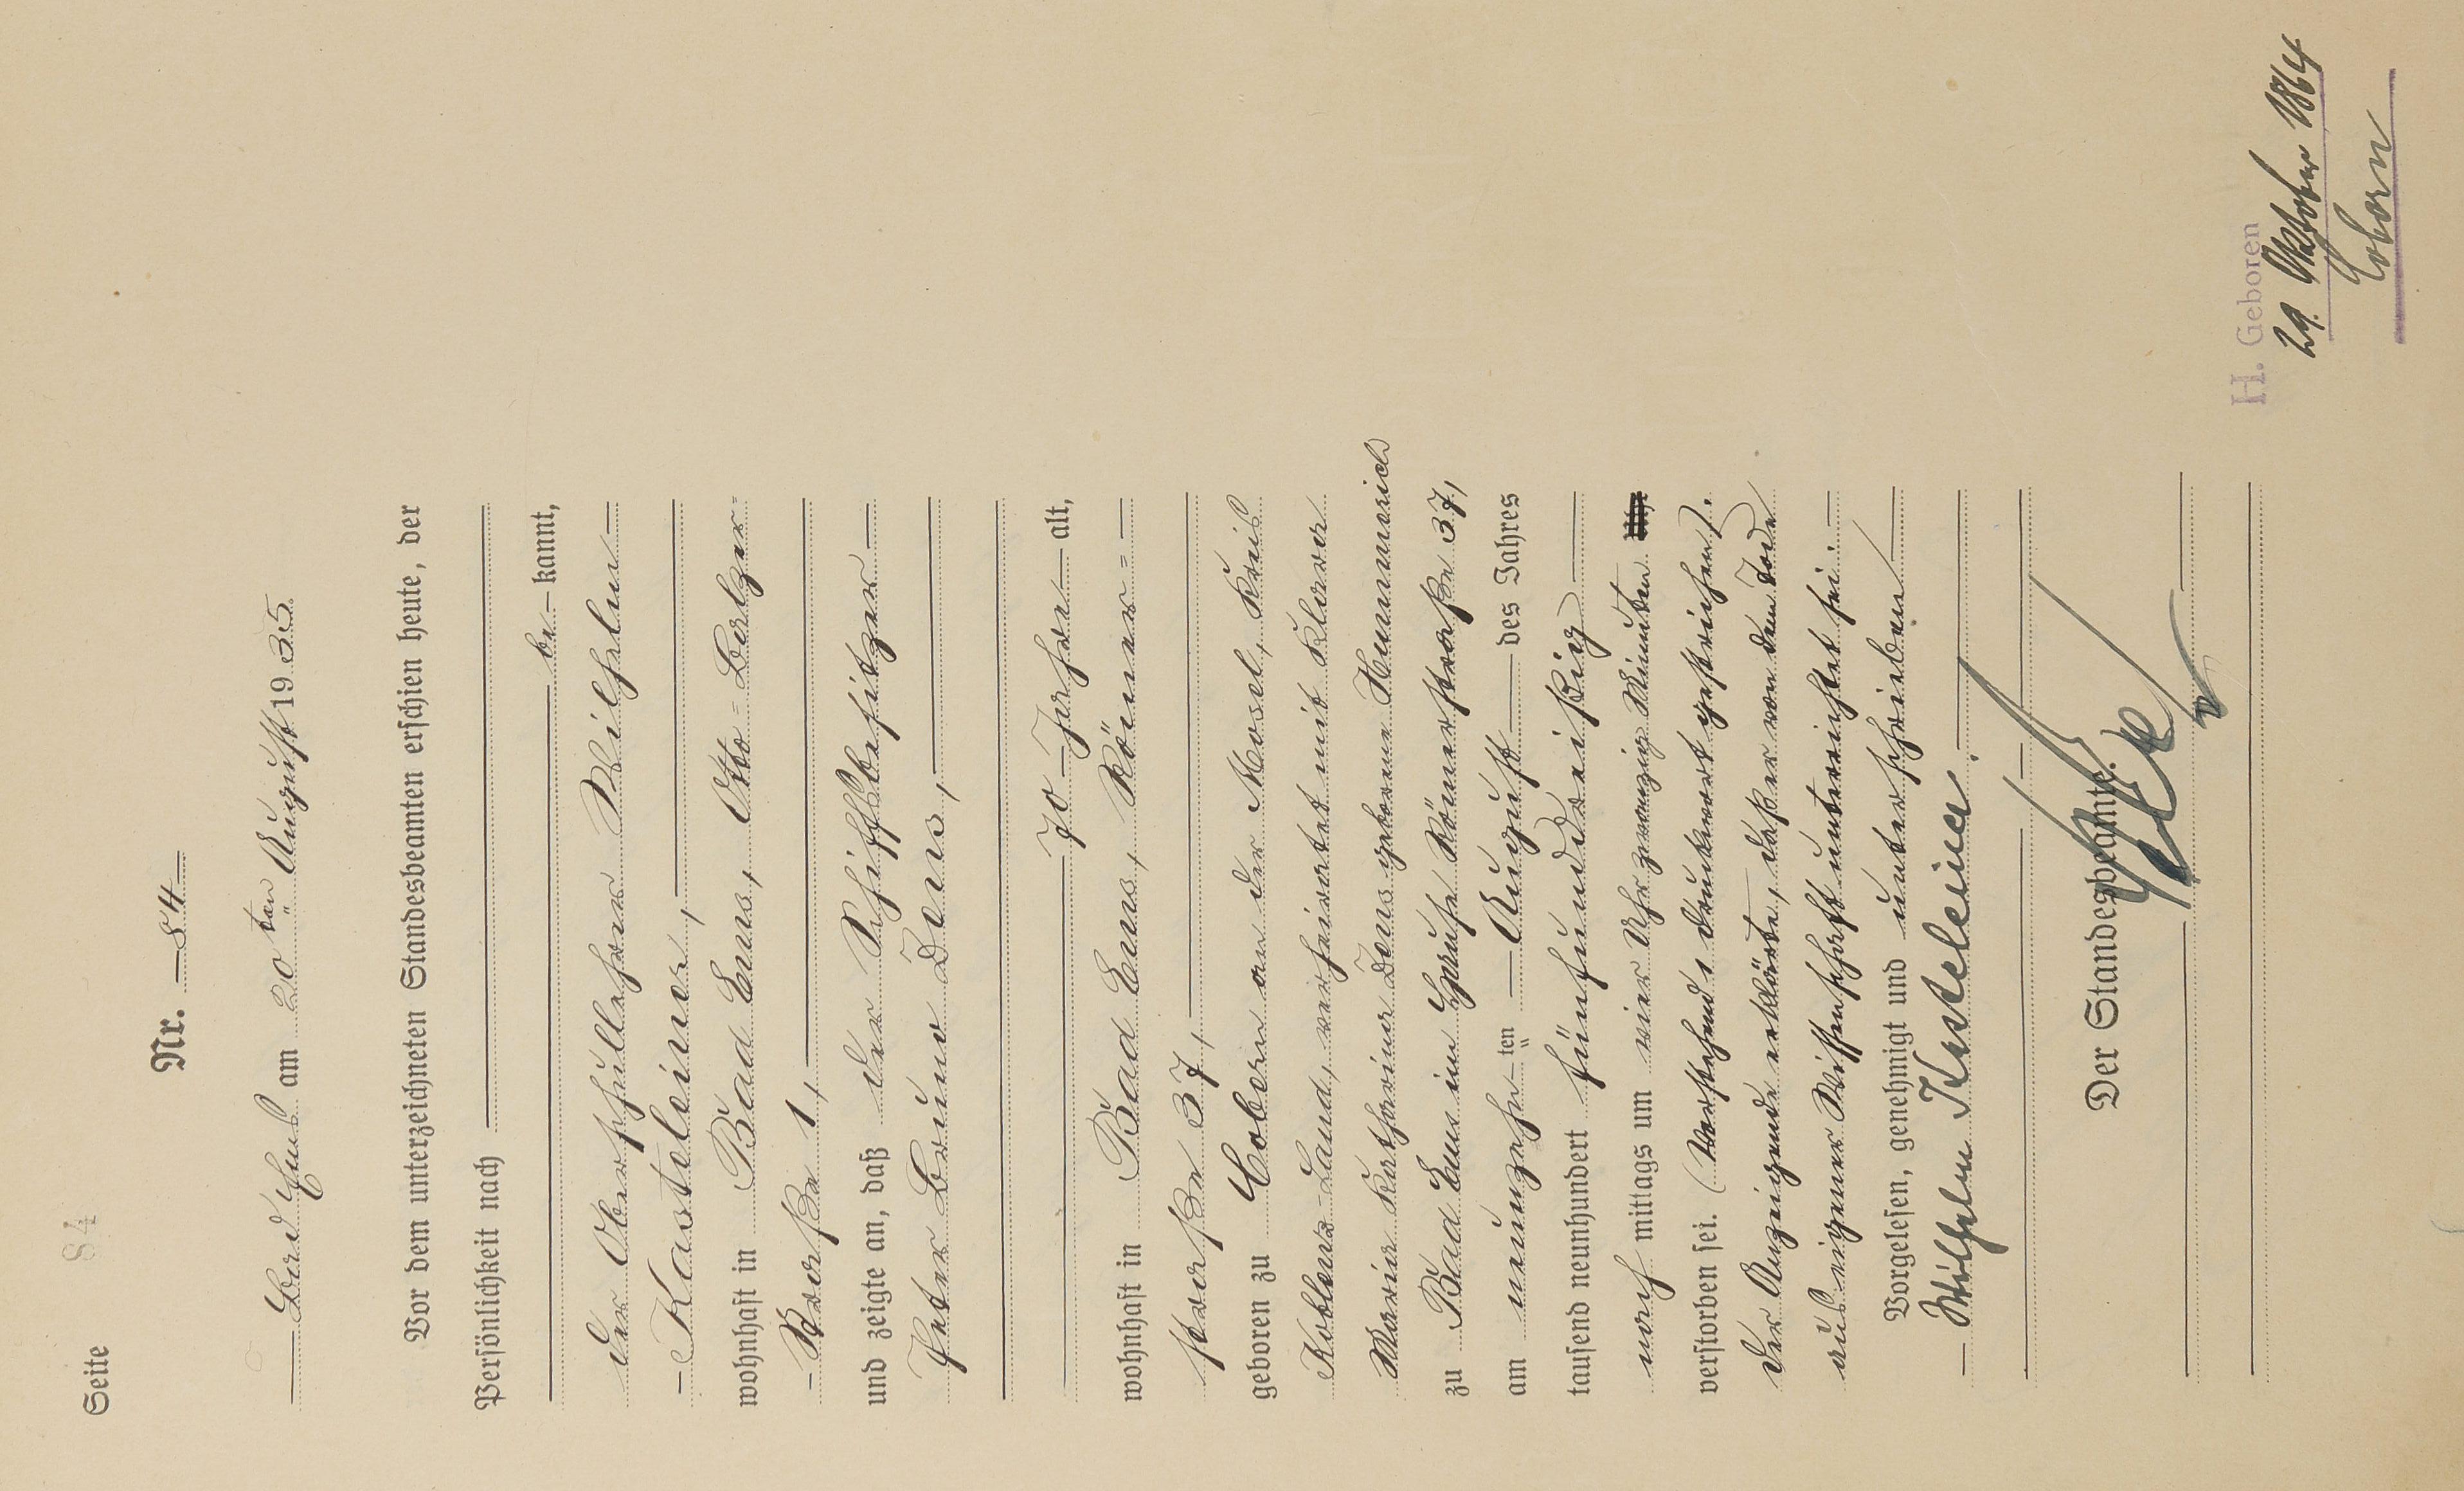 Seite 84
Nr. 84
Bad Ems am 20ten August 1935
Vor dem unterzeichneten Standesbeamten erschien heute, der
Persönlichkeit nach
be kannt,
der Oberschullehrer Wilhelm
Kasteleiner,
wohnhaft in Bad Ems, Otto-Balzer-
Straße 1,
und zeigte an, daß der Schiffsbesitzer
Peter Bruno Dens,
70 Jahre alt,
wohnhaft in Bad Ems, Römer-
straße 37,
geboren zu Cobern an der Mosel, Kreis
Koblenz-Land, verheiratet mit Klara
Maria Katharina Dens geborene Hummerich
zu Bad Ems im Hause Römerstraße 37,
am neunzehn ten August des Jahres
tausend neunhundert fünfunddreißig
nach mittags um vier Uhr zwanzig Minuten
verstorben sei. (Vorstehends Druckwort gestrichen).
Der Anzeigende erklärte, daß er von dem Tode
aus eigener Wissenschaft unterrichtet sei.
Vorgelesen, genehmigt und unterschrieben
Wilhelm Kasteleiner.
Der Standesbeamte.
H. Geboren
29. Oktober 1864
Cobern